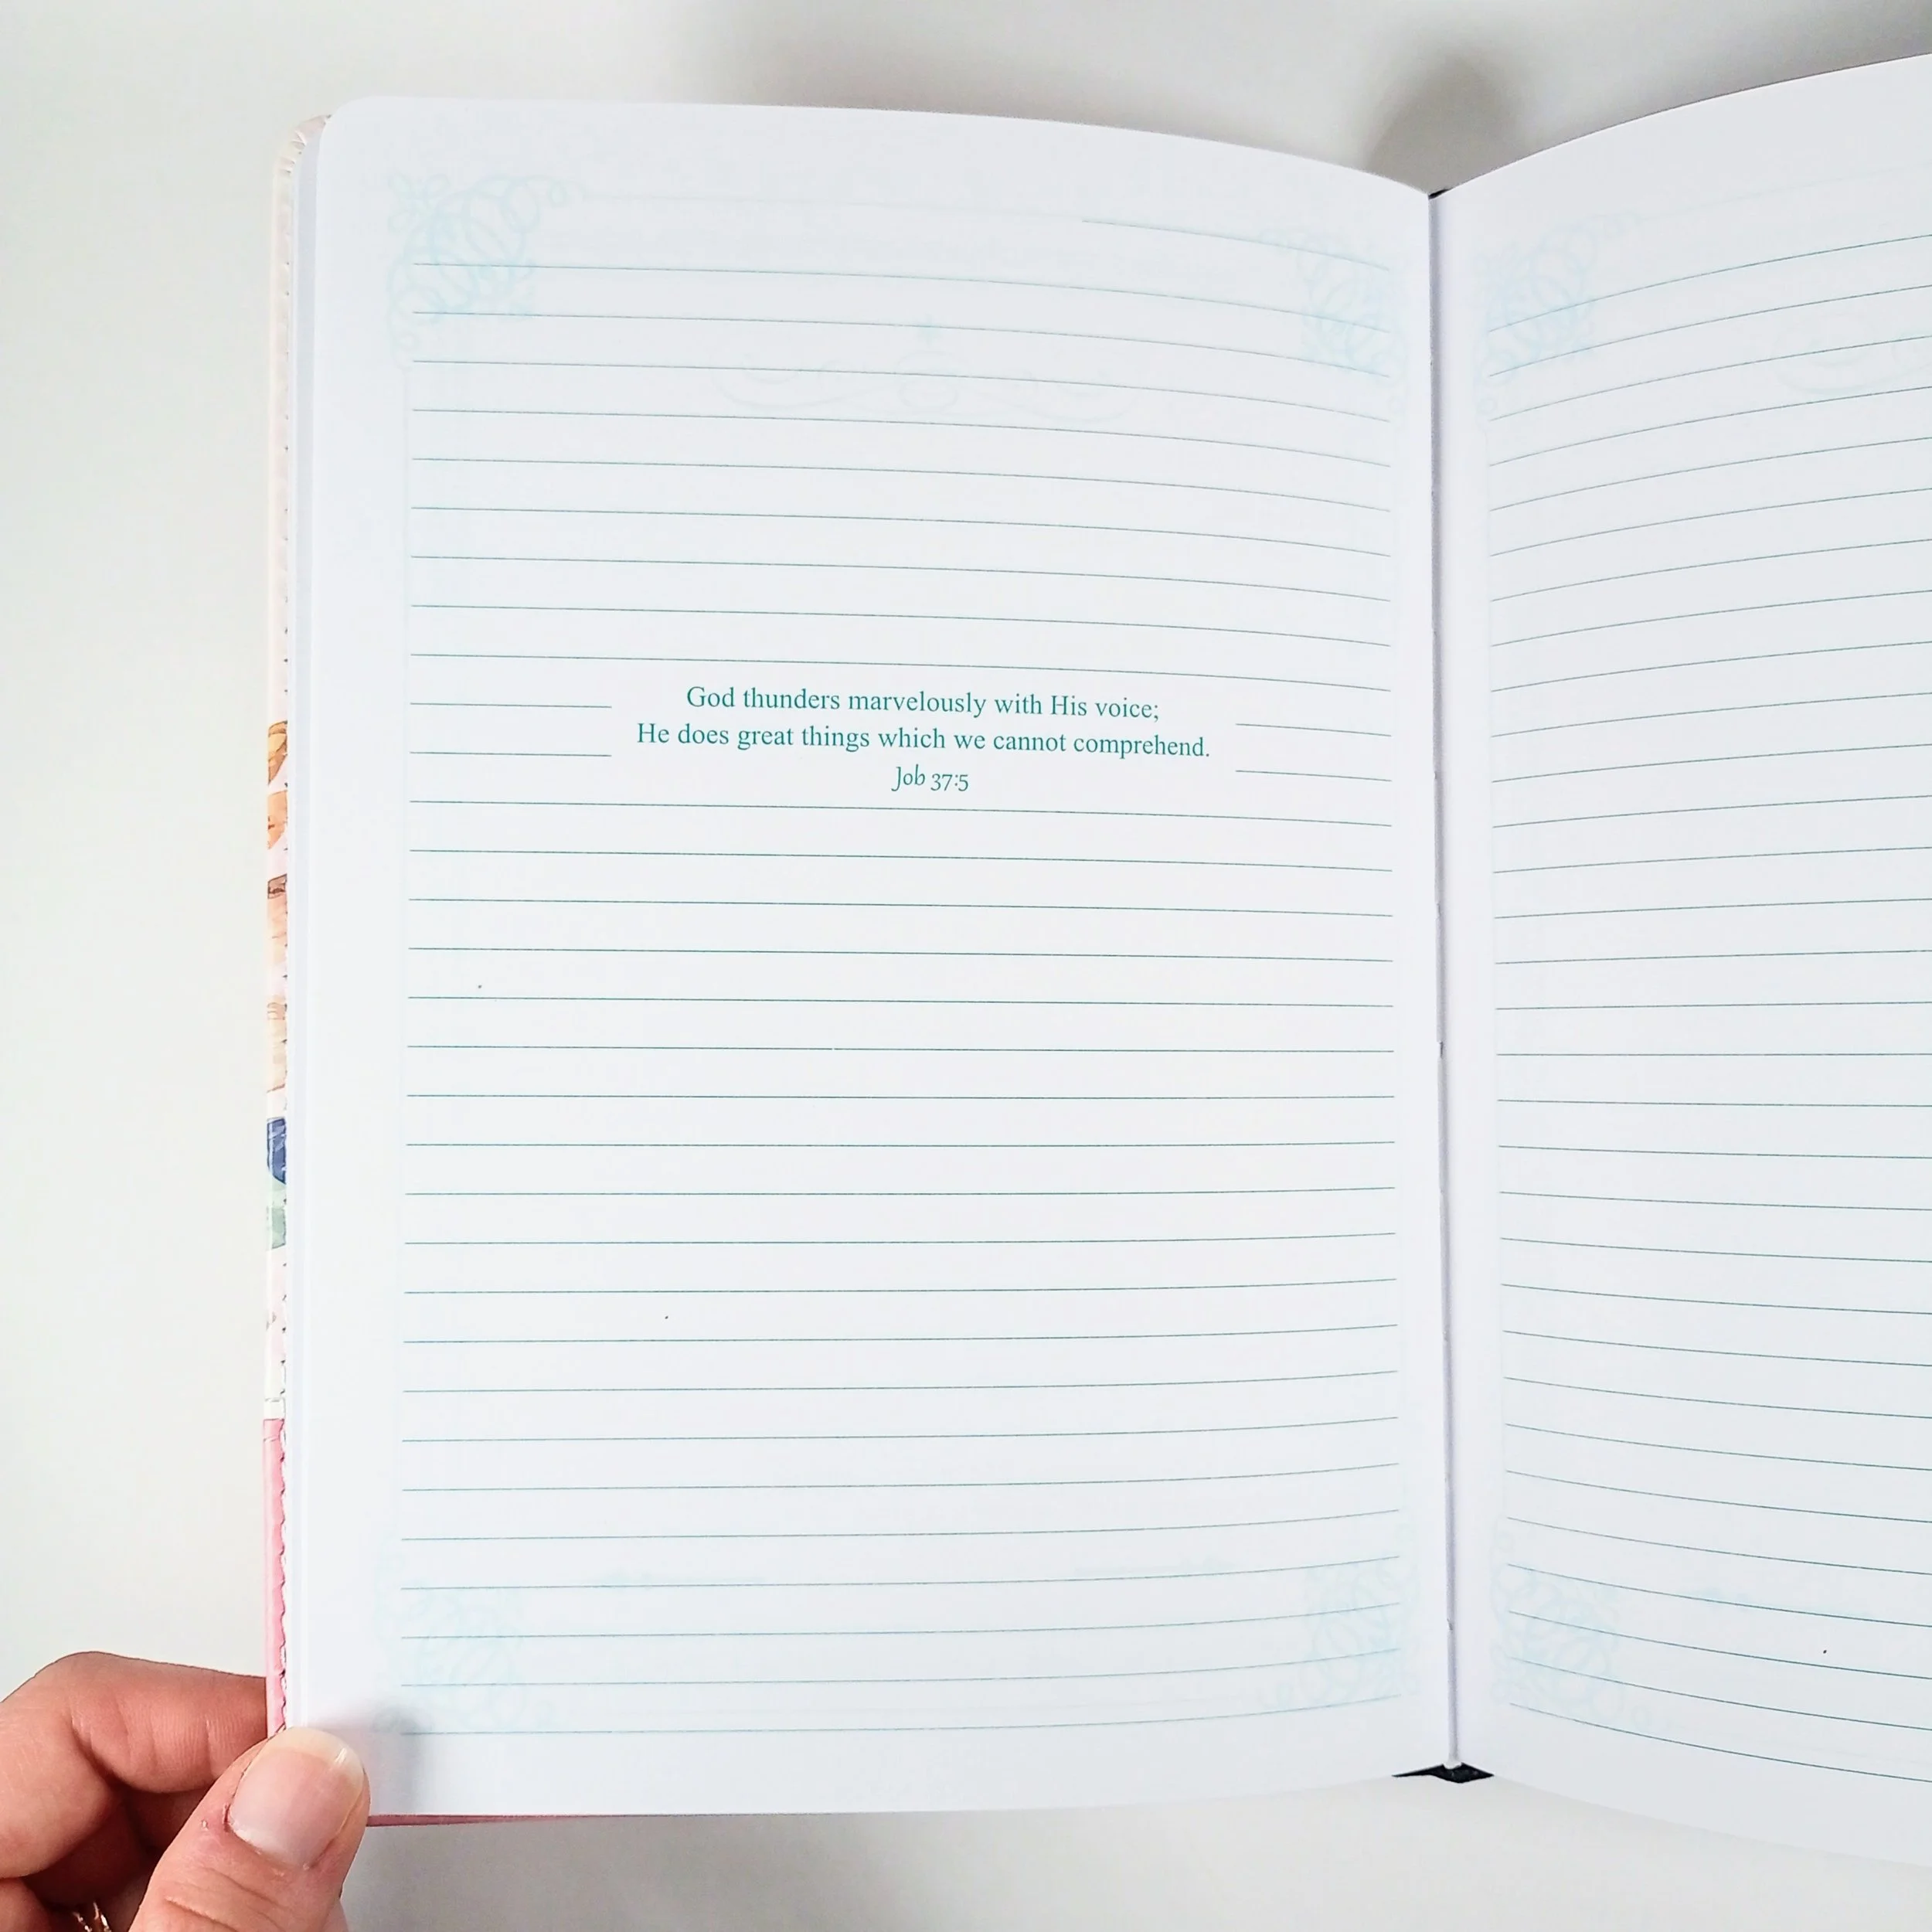 God thunders marvelously with His voice;
He does great things which we cannot comprehend.
Job 37:5